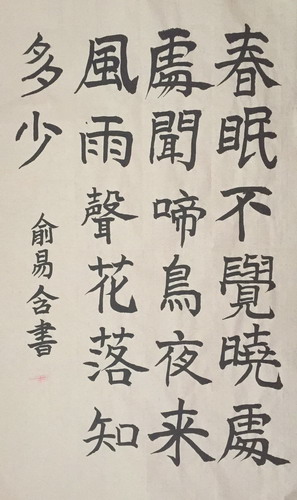 春眠不覺曉處
處聞啼鳥夜来
風雨聲花落知
多少
俞易含書